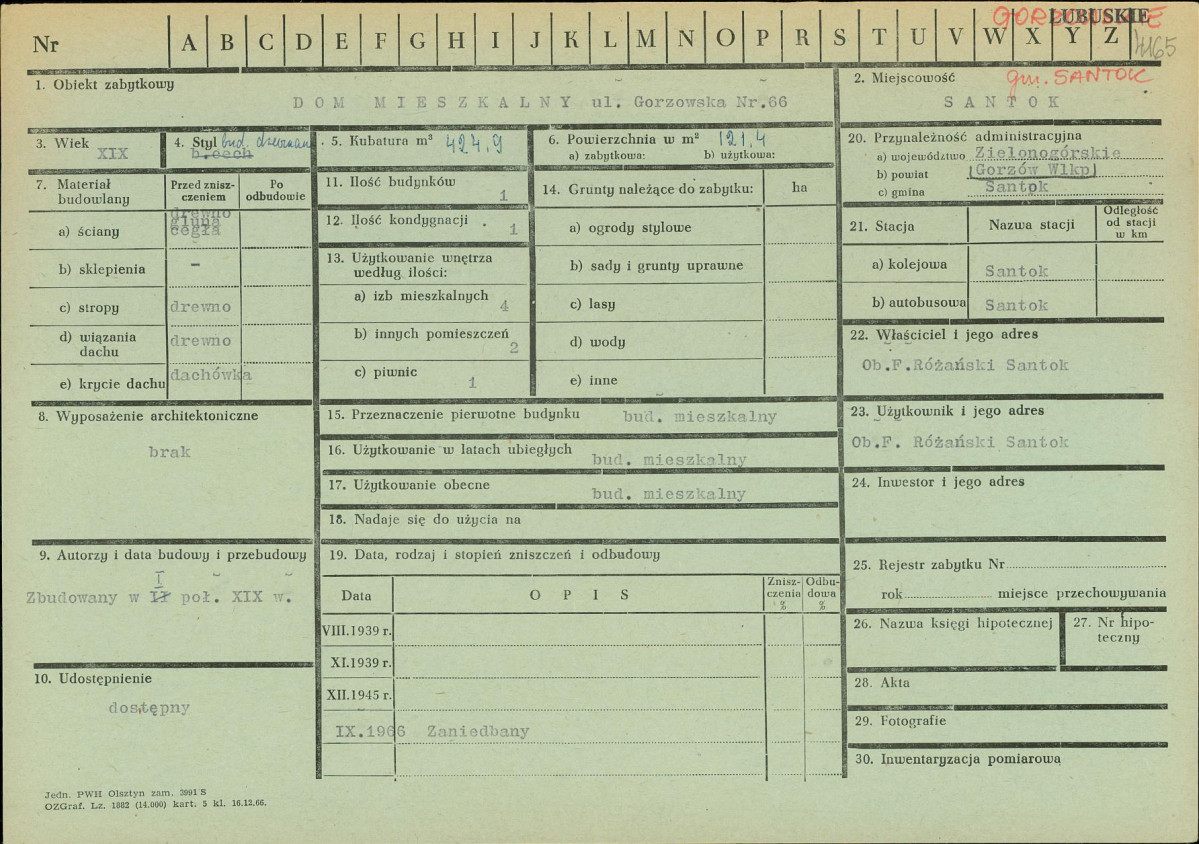 GORZOWSKIE LUBUSKIE
Nr A B C D E F G H I J K L M N O P R S T U V W X Y Z 4165
1. Obiekt zabytkowy
DOM MIESZKALNY ul. Gorzowska Nr.66
2. Miejscowość gm. SANTOK
SANTOK
3. Wiek
XIX
4. Styl bud. drewniany
b.cech
5. Kubatura m³ 424,9
6. Powierzchnia w m² 121,4
a) zabytkowa: b) użytkowa:
20. Przynależność administracyjna
a) województwo Zielonogórskie
b) powiat Gorzów Wlkp
c) gmina Santok
7. Materiał budowlany
Przed zniszczeniem
Po odbudowie
a) ściany drewno
glina
cegła
b) sklepienia -
c) stropy drewno
d) wiązania dachu drewno
e) krycie dachu dachówka
11. Ilość budynków 1
12. Ilość kondygnacji 1
13. Użytkowanie wnętrza według ilości:
a) izb mieszkalnych 4
b) innych pomieszczeń 2
c) piwnic 1
14. Grunty należące do zabytku: ha
a) ogrody stylowe
b) sady i grunty uprawne
c) lasy
d) wody
e) inne
21. Stacja Nazwa stacji Odległość od stacji w km
a) kolejowa Santok
b) autobusowa Santok
22. Właściciel i jego adres
Ob.F.Różański Santok
8. Wyposażenie architektoniczne
brak
15. Przeznaczenie pierwotne budynku bud. mieszkalny
16. Użytkowanie w latach ubiegłych bud. mieszkalny
17. Użytkowanie obecne bud. mieszkalny
18. Nadaje się do użycia na
23. Użytkownik i jego adres
Ob.F. Różański Santok
24. Inwestor i jego adres
9. Autorzy i data budowy i przebudowy
I
Zbudowany w II poł. XIX w.
19. Data, rodzaj i stopień zniszczeń i odbudowy
Data OPIS Zniszczenia % Odbudowa %
VIII.1939 r.
XI.1939 r.
XII.1945 r.
IX.1966 Zaniedbany
25. Rejestr zabytku Nr
rok miejsce przechowywania
26. Nazwa księgi hipotecznej
27. Nr hipoteczny
10. Udostępnienie
dostępny
28. Akta
29. Fotografie
30. Inwentaryzacja pomiarowa
Jedn. PWH Olsztyn zam. 3991 S
OZGraf. Lz. 1882 (14.000) kart. 5 kl. 16.12.66.